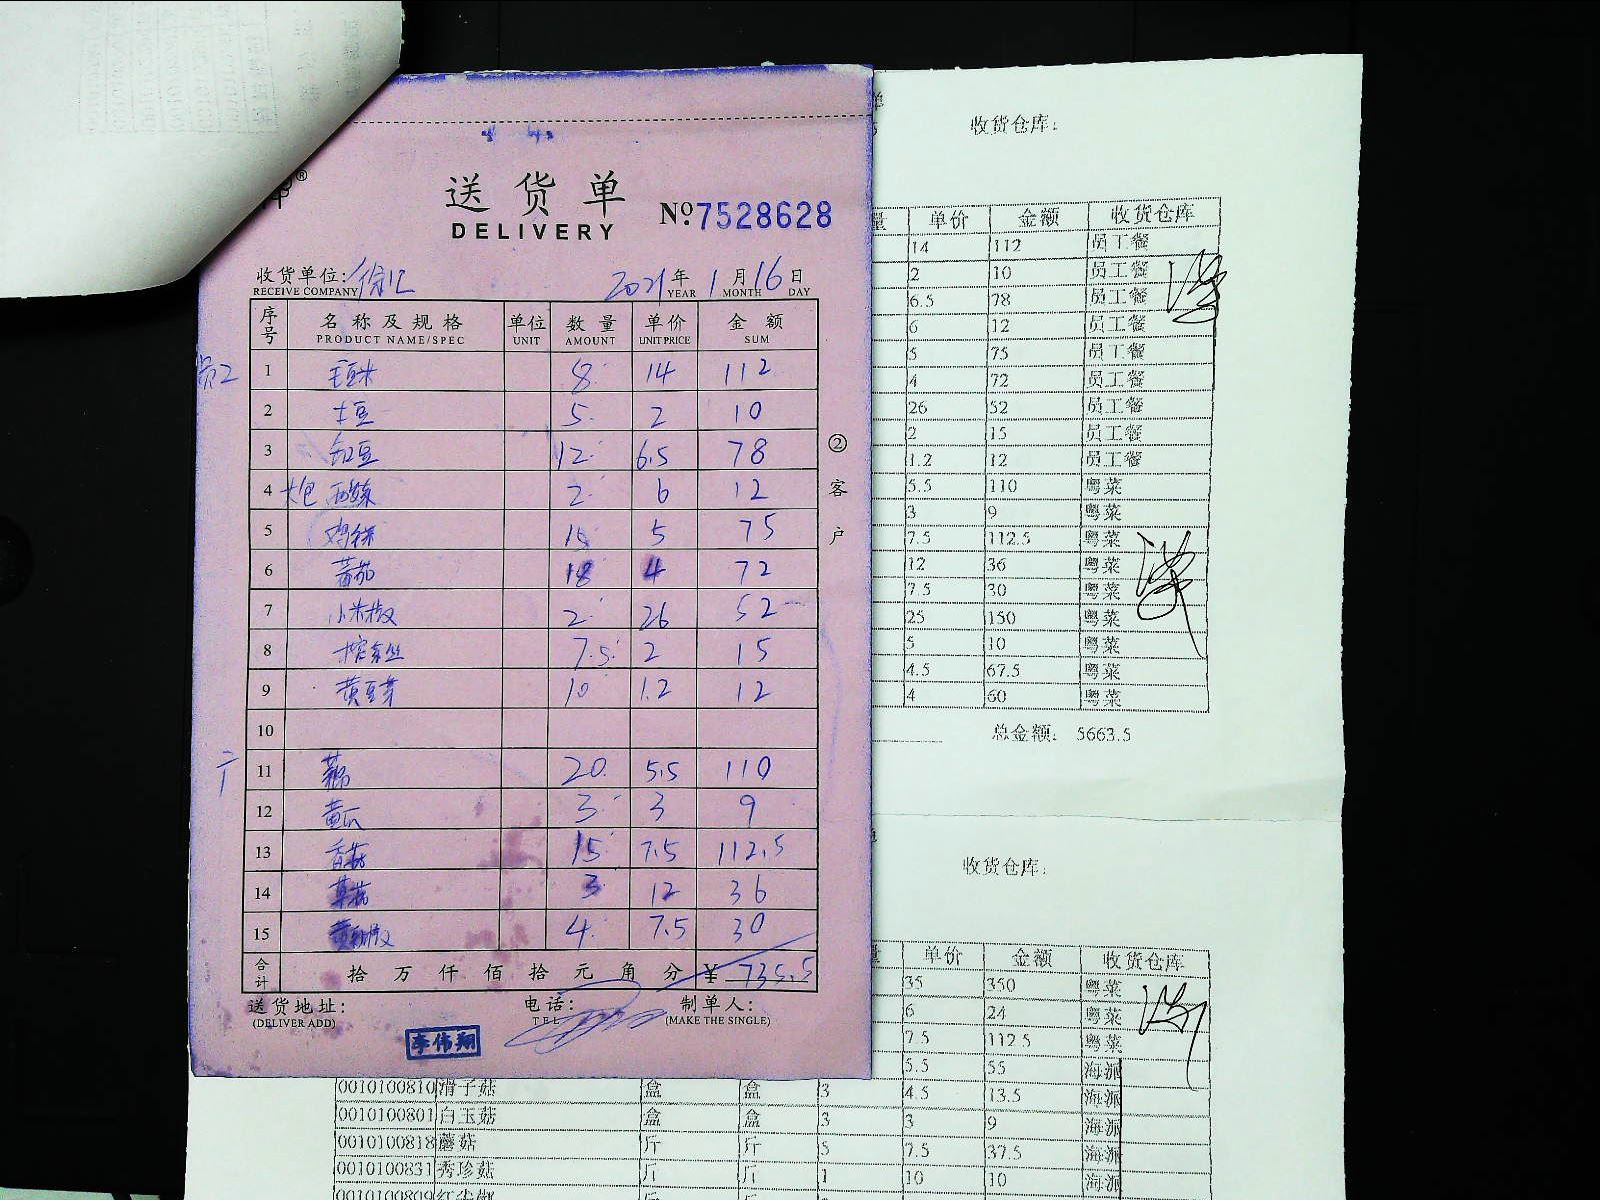 送货单
DELIVERY
№:7528628
收货单位: 徐汇 2021年 1月16日
RECEIVE COMPANY YEAR MONTH DAY
序号 名称及规格 单位 数量 单价 金额
PRODUCT NAME/SPEC UNIT AMOUNT UNIT PRICE SUM
员工 1 毛豆米 8 14 112
2 土豆 5 2 10
3 缸豆 12 6.5 78
4 大包 2 6 12
5 15 5 75
6 蕃茄 18 4 72
7 小米椒 2 26 52
8 榨菜丝 7.5 2 15
9 黄豆芽 10 1.2 12
10
11 20 5.5 110
12 黄瓜 3 3 9
13 香菇 15 7.5 112.5
14 草菇 3 12 36
15 4 7.5 30
合计 拾万仟佰拾元角分 ¥ 735.5
② 客户
送货地址: 电话: 制单人:
(DELIVER ADD) TEL (MAKE THE SINGLE)
李伟翔
收货仓库:
量 单价 金额 收货仓库
14 112 员工餐
2 10 员工餐
6.5 78 员工餐
6 12 员工餐
5 75 员工餐
4 72 员工餐
26 52 员工餐
2 15 员工餐
1.2 12 员工餐
5.5 110 粤菜
3 9 粤菜
7.5 112.5 粤菜
12 36 粤菜
7.5 30 粤菜
25 150 粤菜
5 10 粤菜
4.5 67.5 粤菜
4 60 粤菜
总金额: 5663.5
收货仓库:
量 单价 金额 收货仓库
35 350 粤菜
6 24 粤菜
7.5 112.5 粤菜
5.5 55 海派
0010100810 滑子菇 盒 盒 3 4.5 13.5 海派
0010100801 白玉菇 盒 盒 3 3 9 海派
0010100818 蘑菇 斤 斤 5 7.5 37.5 海派
0010100831 秀珍菇 斤 斤 1 10 10 海派